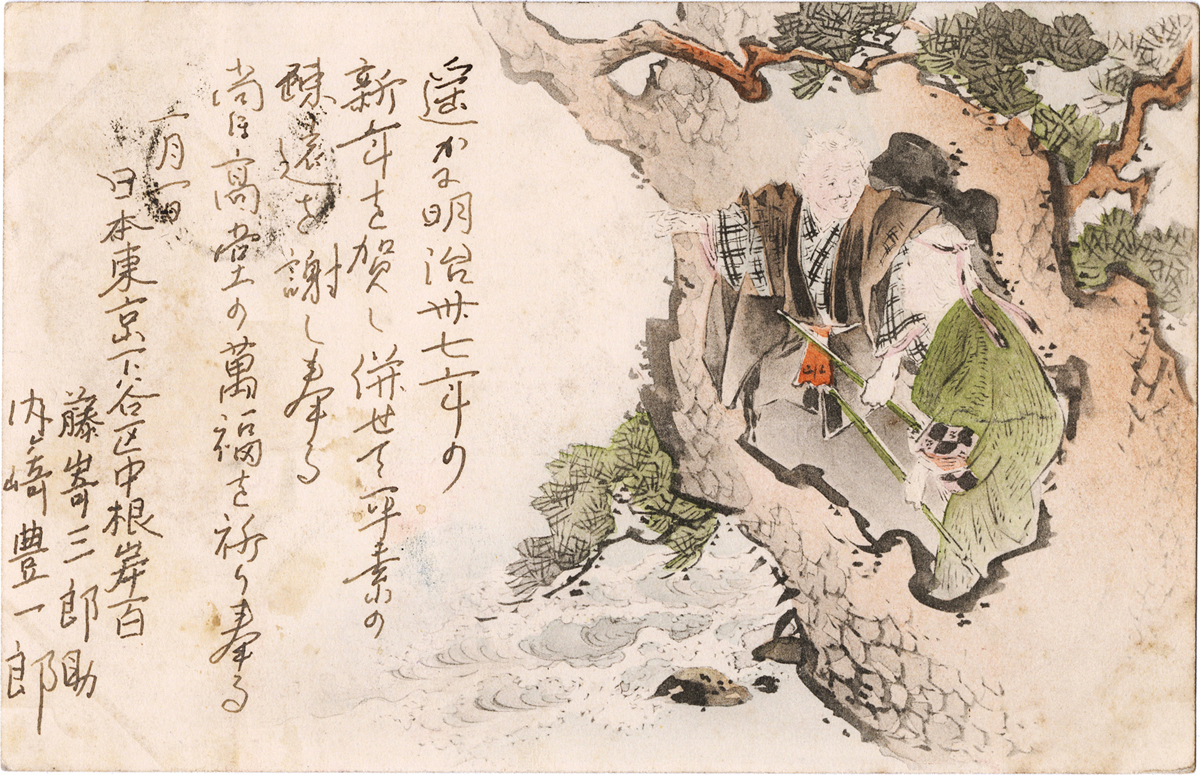 遥かに明治卅七年の
新年を賀し併せて平素の
疎遠を謝し奉る
尚ほ高堂の萬福を祈り奉る
一月一日
日本東京下谷区中根岸百
藤嵜三郎助
内ヶ崎豊一郎